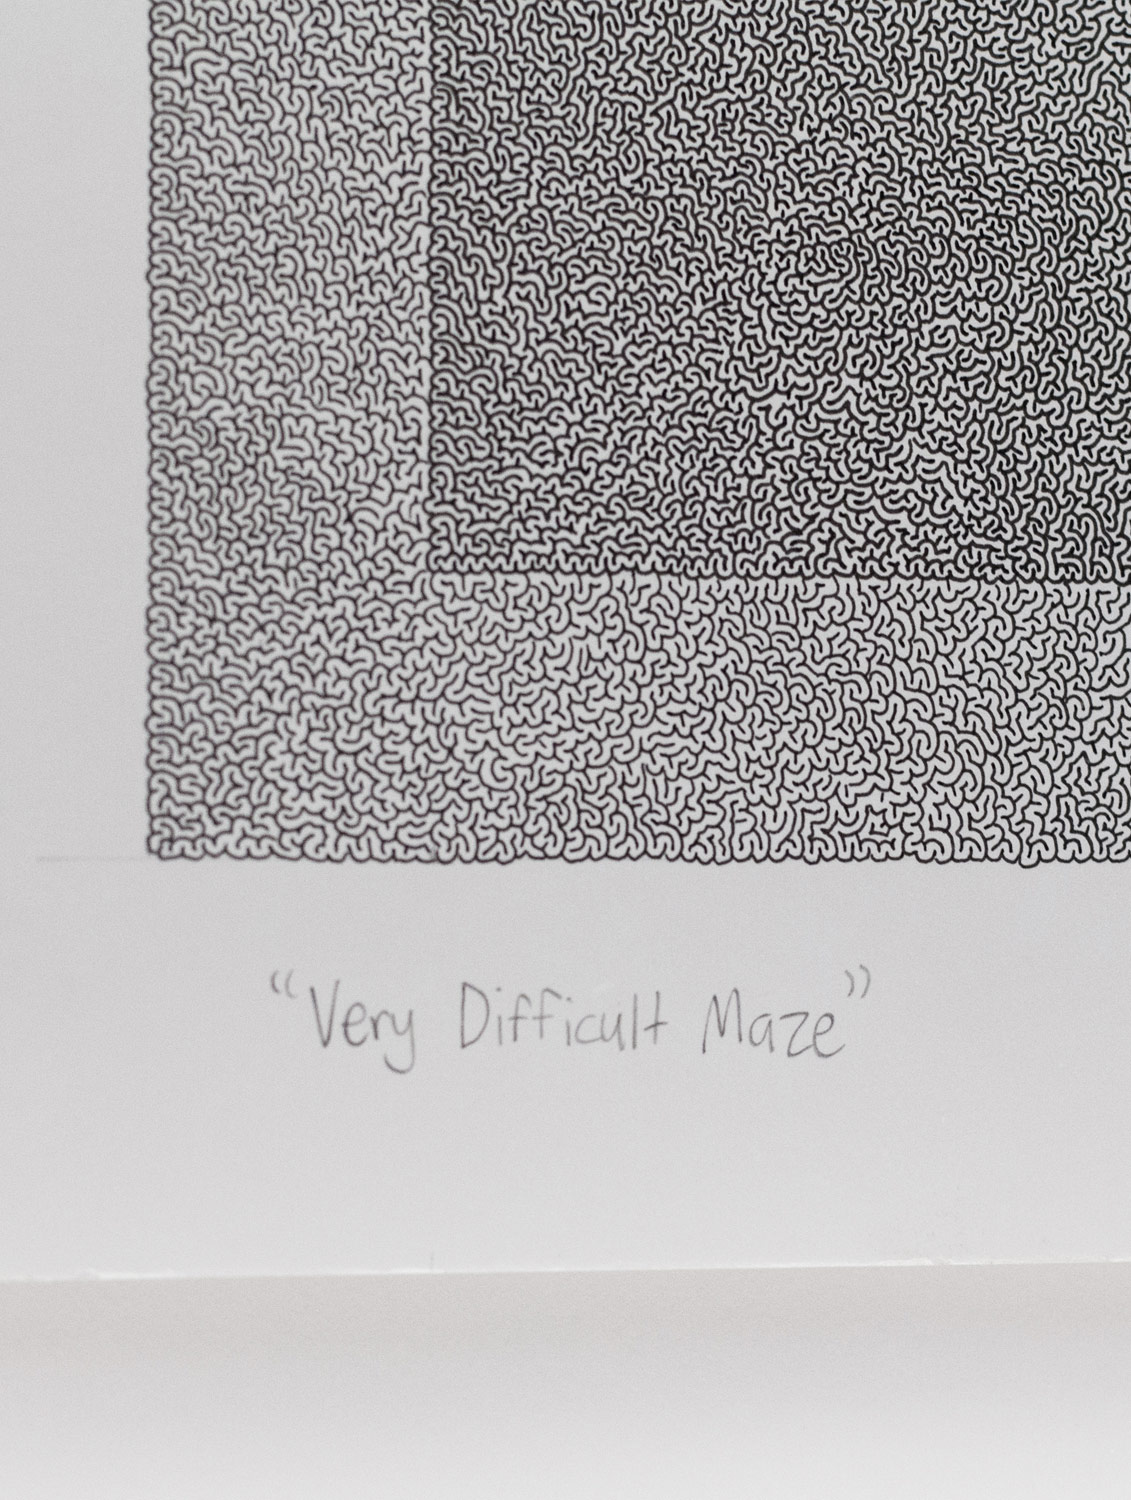 “Very Difficult Maze”